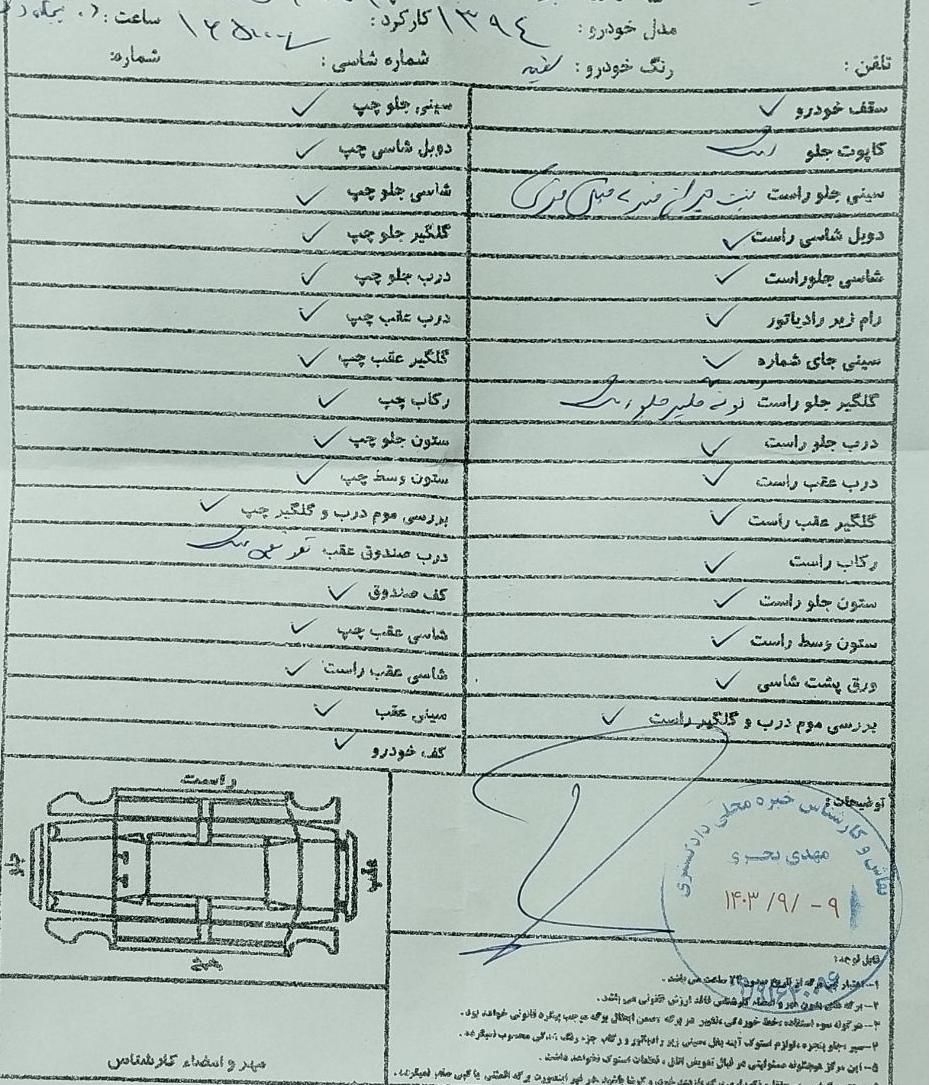 مدل خودرو : ۱۳۹۴ کارکرد : ساعت :
تلفن : رنگ خودرو : سفید شماره شاسی : شماره:
سقف خودرو ✓ سینی جلو چپ ✓
کاپوت جلو رنگ دوبل شاسی چپ ✓
سینی جلو راست شاسی جلو چپ ✓
دوبل شاسی راست ✓ گلگیر جلو چپ ✓
شاسی جلوراست ✓ درب جلو چپ ✓
رام زیر رادیاتور ✓ درب عقب چپ ✓
سینی جای شماره ✓ گلگیر عقب چپ ✓
گلگیر جلو راست رکاب چپ ✓
درب جلو راست ✓ ستون جلو چپ ✓
درب عقب راست ✓ ستون وسط چپ ✓
گلگیر عقب راست ✓ بررسی موم درب و گلگیر چپ ✓
رکاب راست ✓ درب صندوق عقب
ستون جلو راست ✓ کف صندوق ✓
ستون وسط راست ✓ شاسی عقب چپ ✓
ورق پشت شاسی ✓ شاسی عقب راست ✓
بررسی موم درب و گلگیر راست ✓ سینی عقب ✓
کف خودرو ✓
توضیحات :
نقاش و کارشناس خبره محلی دادگستری
مهدی بحری
۱۴۰۳ /۹/ -۹
راست
جلو
عقب
چپ
قابل توجه :
۱- اعتبار این برگه از تاریخ صدور ۲۴ ساعت می باشد .
۲- برگه های بدون مهر و امضاء کارشناس فاقد ارزش قانونی می باشد .
۳- هر گونه سوء استفاده ، خط خوردگی ، تغییر در برگه ضمن ابطال برگه موجب پیگرد قانونی خواهد بود .
۴- سپر ، جلو پنجره ، لوازم استوک آینه بغل ، سینی زیر رادیاتور و رکاب جزء رنگ شدگی محسوب نمیگردد .
۵- این مرکز هیچگونه مسئولیتی در قبال تعویض اتاق ، قطعات استوک نخواهد داشت .
مهر و امضاء کارشناس